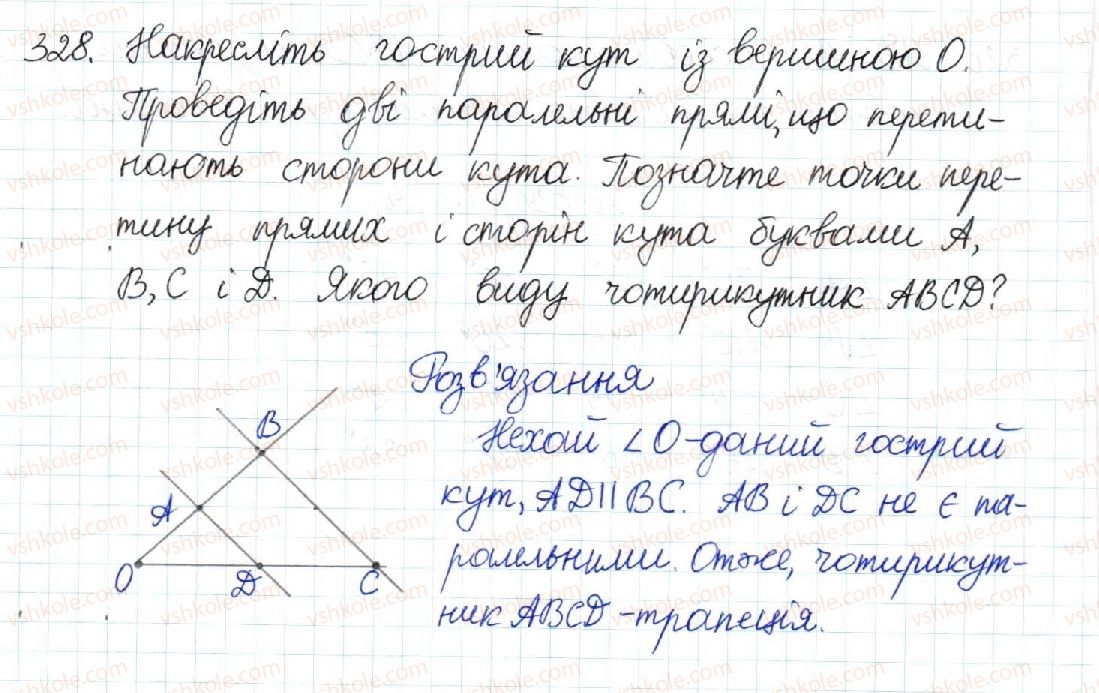 328. Накресліть гострий кут із вершиною О.
Проведіть дві паралельні прямі, що перети-
нають сторони кута. Позначте точки пере-
тину прямих і сторін кута буквами А,
В, С і D. Якого виду чотирикутник ABCD?
Розв'язання
Нехай ∠O-даний гострий
кут, AD||BC. AB і DC не є па-
ралельними. Отже, чотирикут-
ник ABCD-трапеція.
B
A
O D C